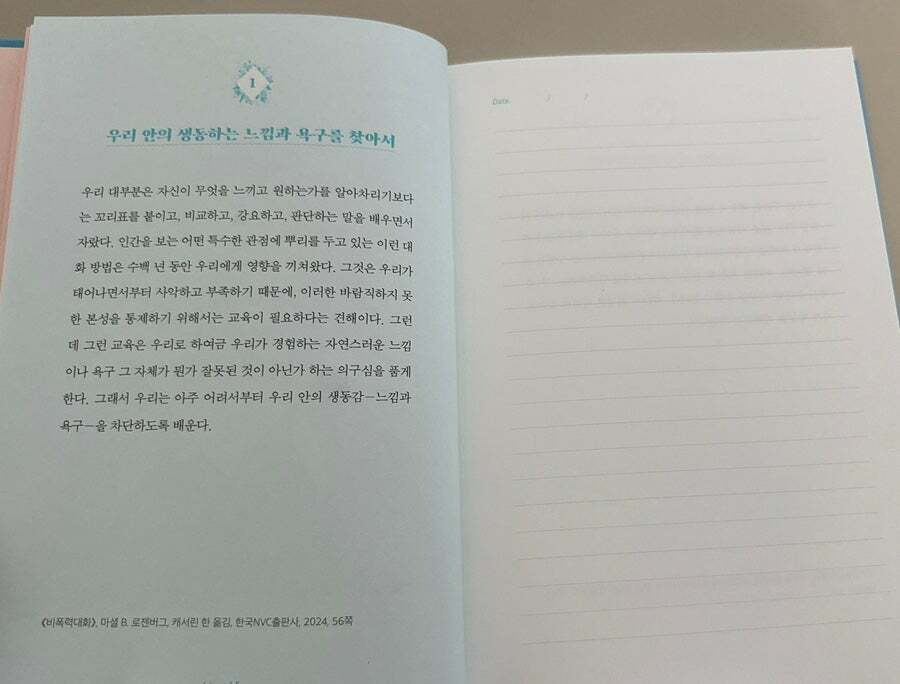 1
우리 안의 생동하는 느낌과 욕구를 찾아서
우리 대부분은 자신이 무엇을 느끼고 원하는가를 알아차리기보다
는 꼬리표를 붙이고, 비교하고, 강요하고, 판단하는 말을 배우면서
자랐다. 인간을 보는 어떤 특수한 관점에 뿌리를 두고 있는 이런 대
화 방법은 수백 년 동안 우리에게 영향을 끼쳐왔다. 그것은 우리가
태어나면서부터 사악하고 부족하기 때문에, 이러한 바람직하지 못
한 본성을 통제하기 위해서는 교육이 필요하다는 견해이다. 그런
데 그런 교육은 우리로 하여금 우리가 경험하는 자연스러운 느낌
이나 욕구 그 자체가 뭔가 잘못된 것이 아닌가 하는 의구심을 품게
한다. 그래서 우리는 아주 어려서부터 우리 안의 생동감—느낌과
욕구—을 차단하도록 배운다.
《비폭력대화》, 마셜 B. 로젠버그, 캐서린 한 옮김, 한국NVC출판사, 2024, 56쪽
Date / /